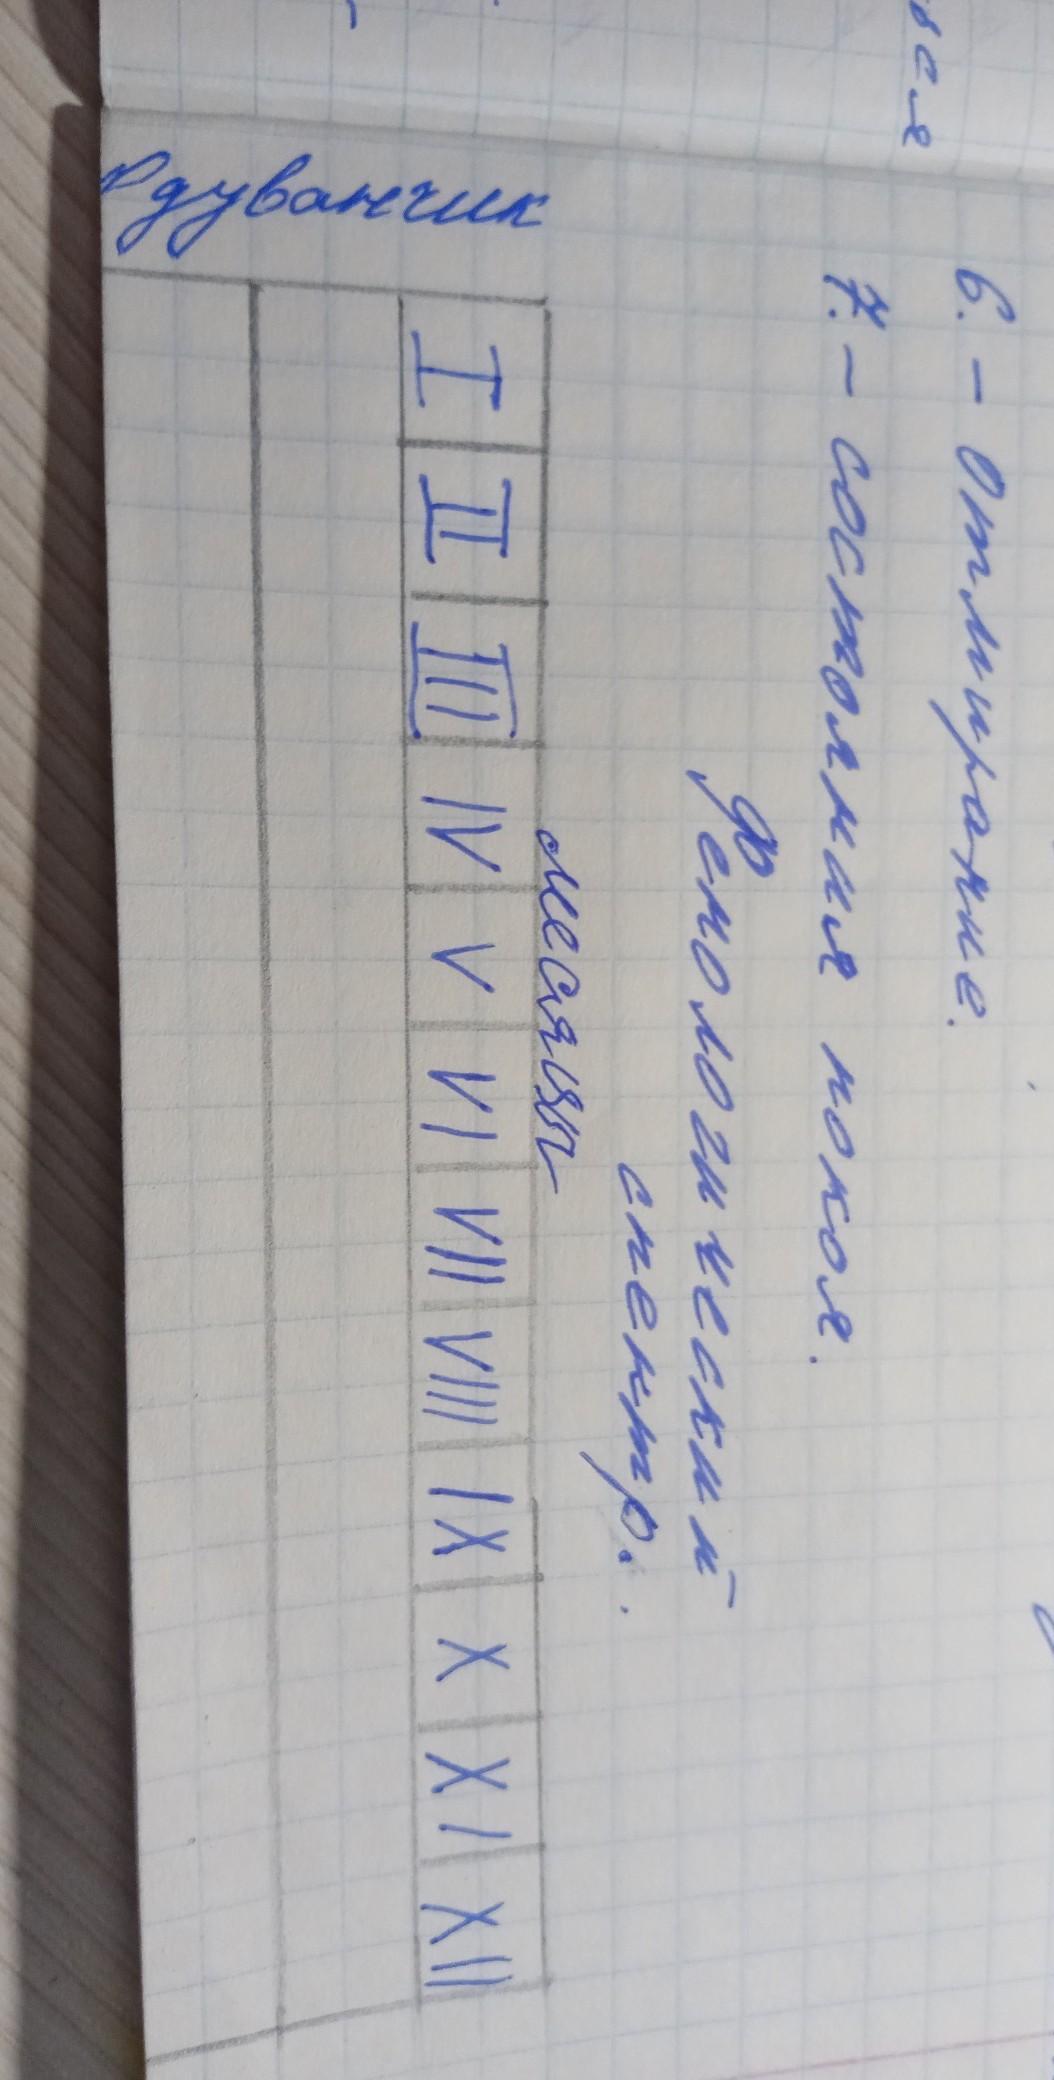 вся
6. - Отмирание.
7. - состояния покоя.
Фенологический
спектр.
месяцы
I II III IV V VI VII VIII IX X XI XII
Одуванчик